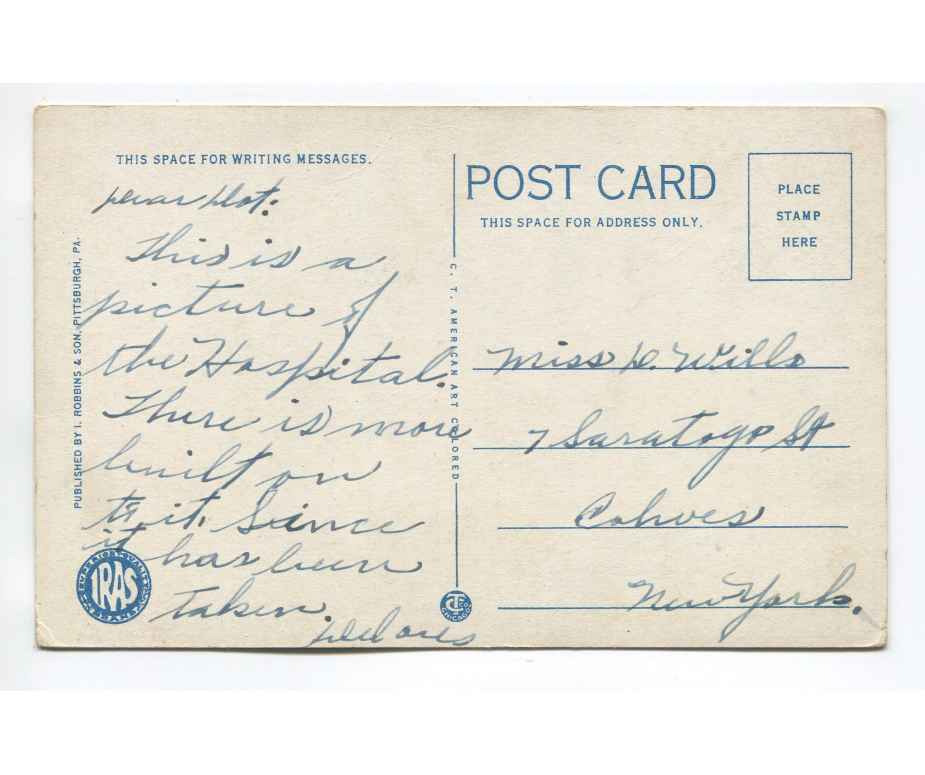 THIS SPACE FOR WRITING MESSAGES.
Dear Dot:
This is a
picture of
the Hospital.
There is more
built on
to it. Since
it has been
taken.
Delores
PUBLISHED BY I. ROBBINS & SON, PITTSBURGH, PA.
IRAS
C. T. AMERICAN ART COLORED
CHICAGO
POST CARD
THIS SPACE FOR ADDRESS ONLY.
PLACE
STAMP
HERE
Miss D. Wills
7 Saratoga St
Cohoes
New York.